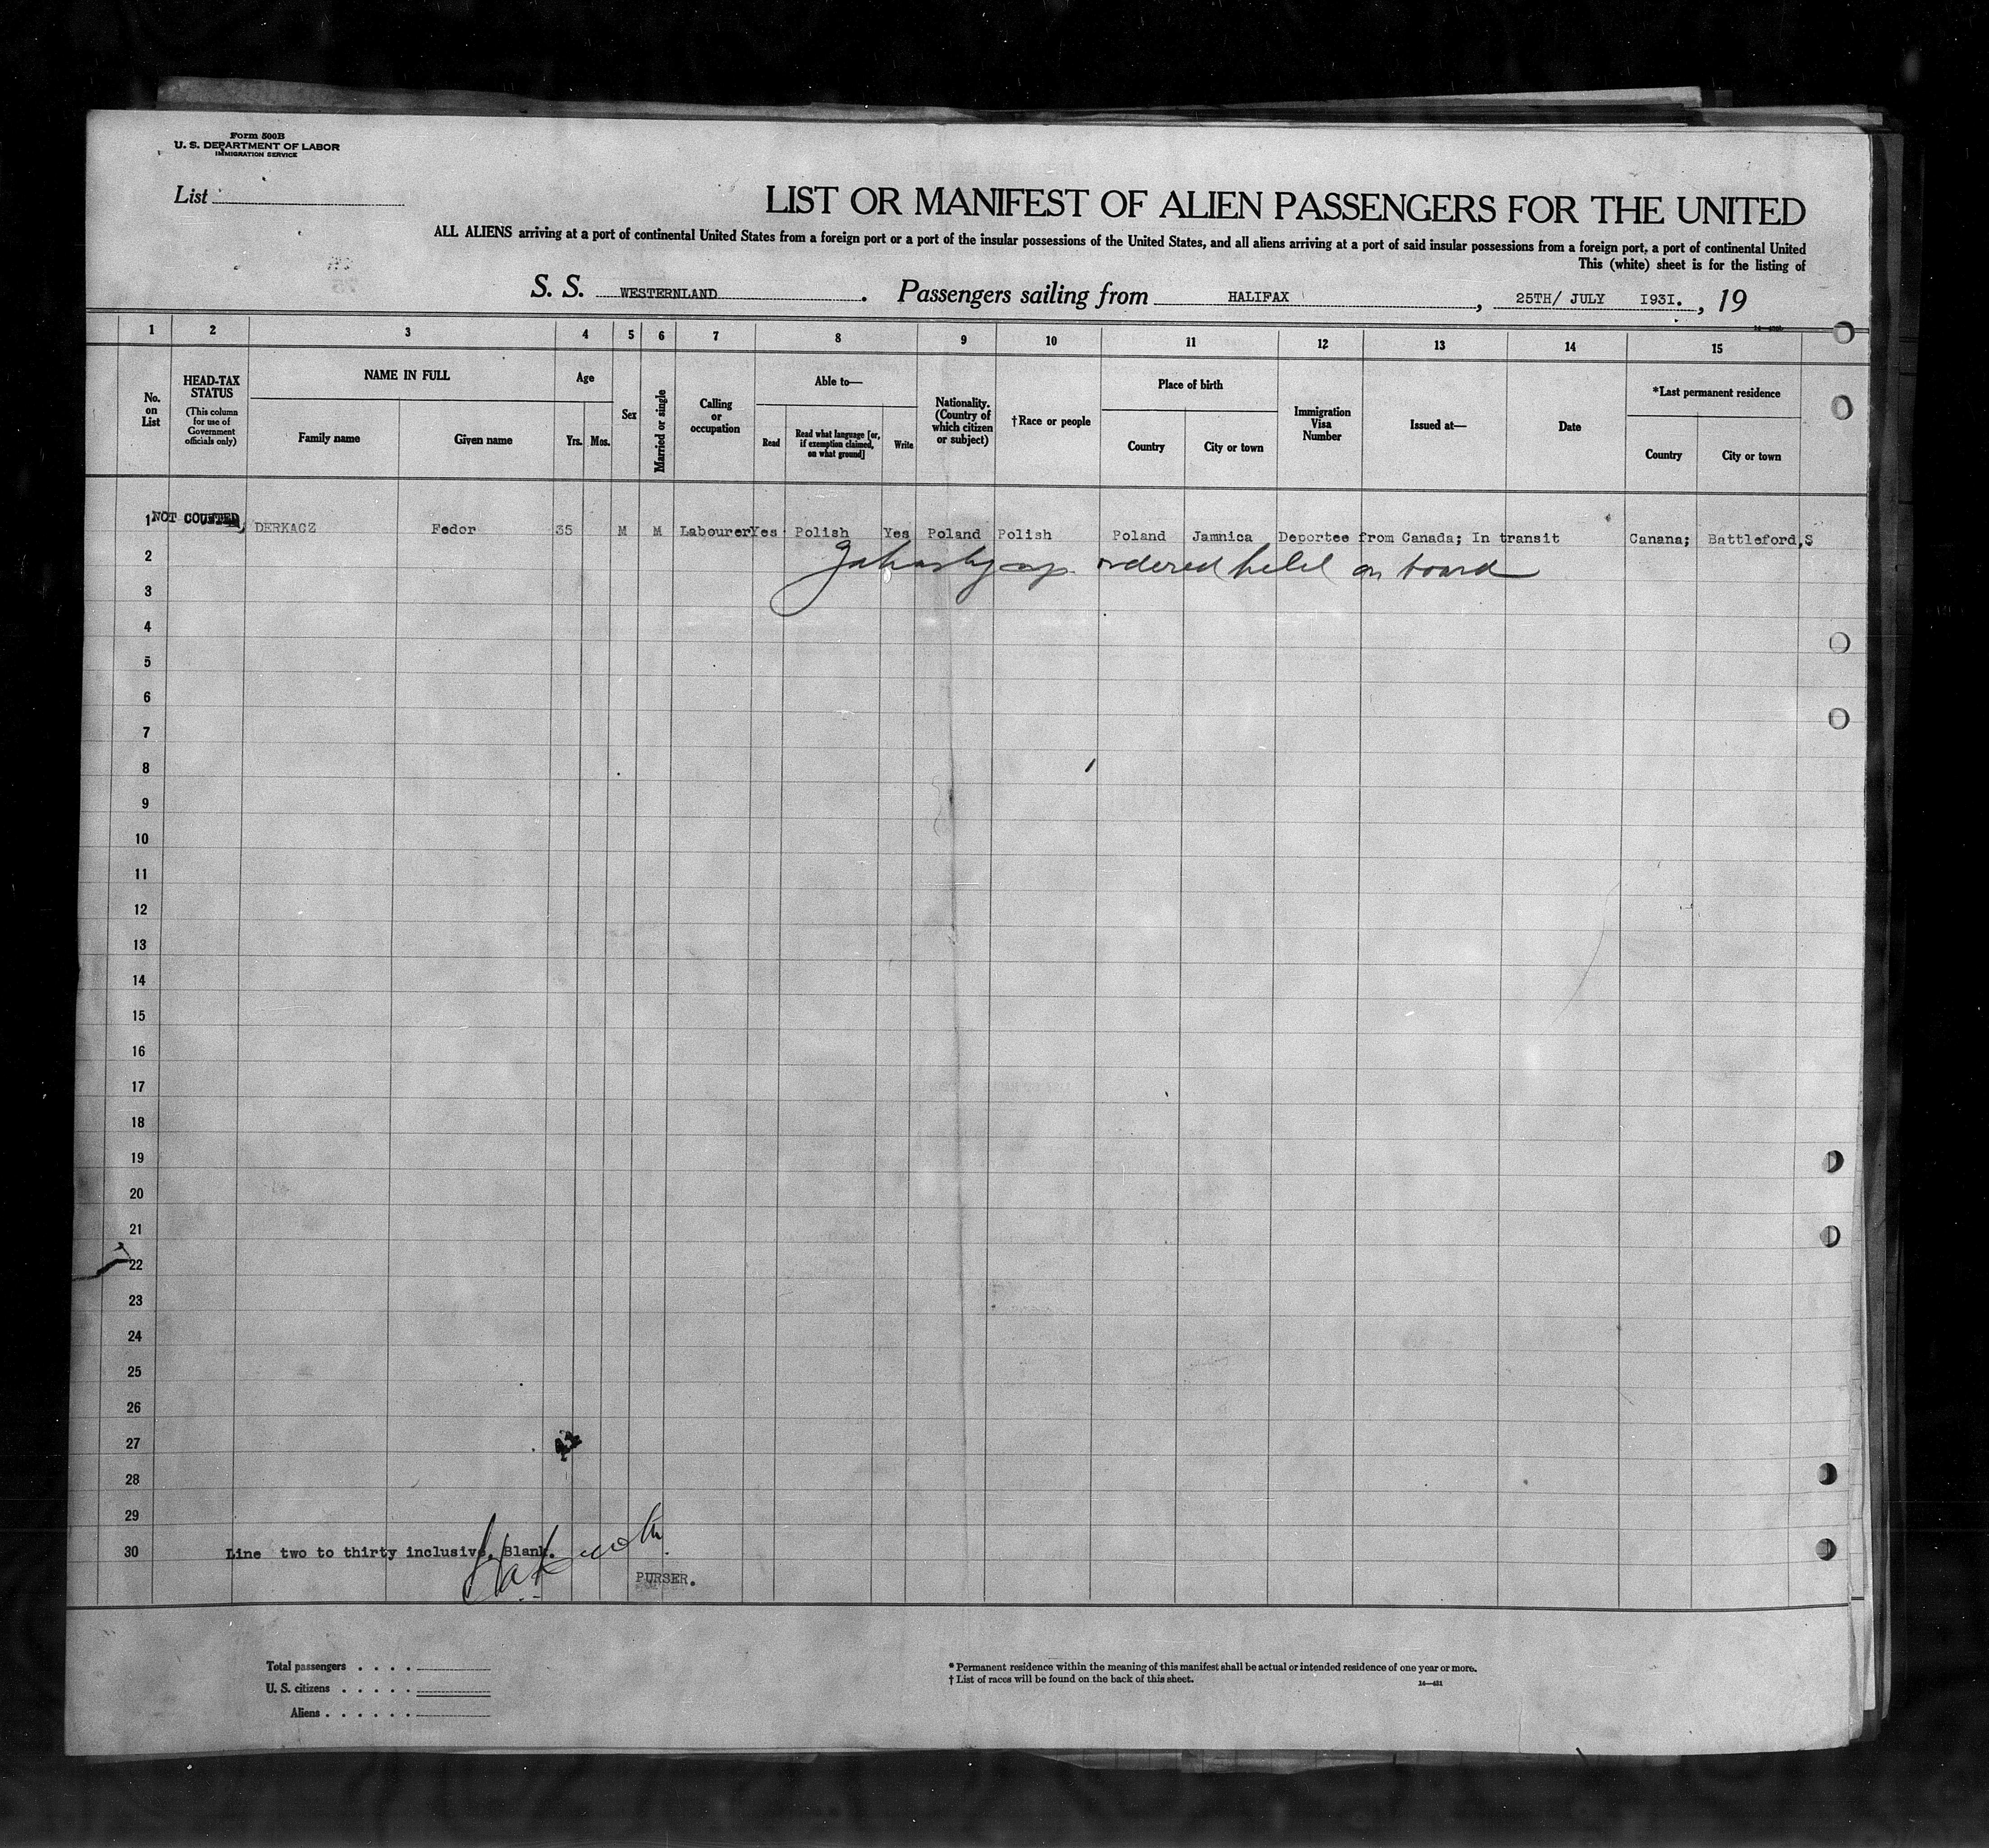 Form 500B
U. S. DEPARTMENT OF LABOR
IMMIGRATION SERVICE
List
LIST OR MANIFEST OF ALIEN PASSENGERS FOR THE UNITED
ALL ALIENS arriving at a port of continental United States from a foreign port or a port of the insular possessions of the United States, and all aliens arriving at a port of said insular possessions from a foreign port, a port of continental United
This (white) sheet is for the listing of
S. S. WESTERNLAND. Passengers sailing from HALIFAX, 25TH/ JULY 1931., 19
1 2 3 4 5 6 7 8 9 10 11 12 13 14 15
No. on List
HEAD-TAX STATUS
(This column for use of Government officials only)
NAME IN FULL
Family name Given name
Age
Yrs. Mos.
Sex
Married or single
Calling or occupation
Able to—
Read
Read what language [or, if exemption claimed, on what ground]
Write
Nationality. (Country of which citizen or subject)
†Race or people
Place of birth
Country City or town
Immigration Visa Number
Issued at—
Date
*Last permanent residence
Country City or town
1 NOT COUNTED, DERKACZ Fedor 35 M M Labourer Yes Polish Yes Poland Polish Poland Jamnica Deportee from Canada; In transit Canana; Battleford,S
2 ordered held on board
3
4
5
6
7
8
9
10
11
12
13
14
15
16
17
18
19
20
21
22
23
24
25
26
27
28
29
30 Line two to thirty inclusive, Blank.
PURSER.
Total passengers . . . .
U. S. citizens . . . . .
Aliens . . . . . .
* Permanent residence within the meaning of this manifest shall be actual or intended residence of one year or more.
† List of races will be found on the back of this sheet.
14—481